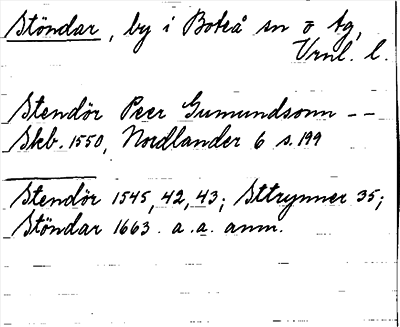 Stöndar, by i Boteå sn o tg,
Vrnl. l.
Stendör Peer Gumundsonn --
Skb. 1550, Nordlander 6 s. 199
Stendör 1545, 42, 43; Sttrynner 35;
Stöndar 1663. a. a. anm.